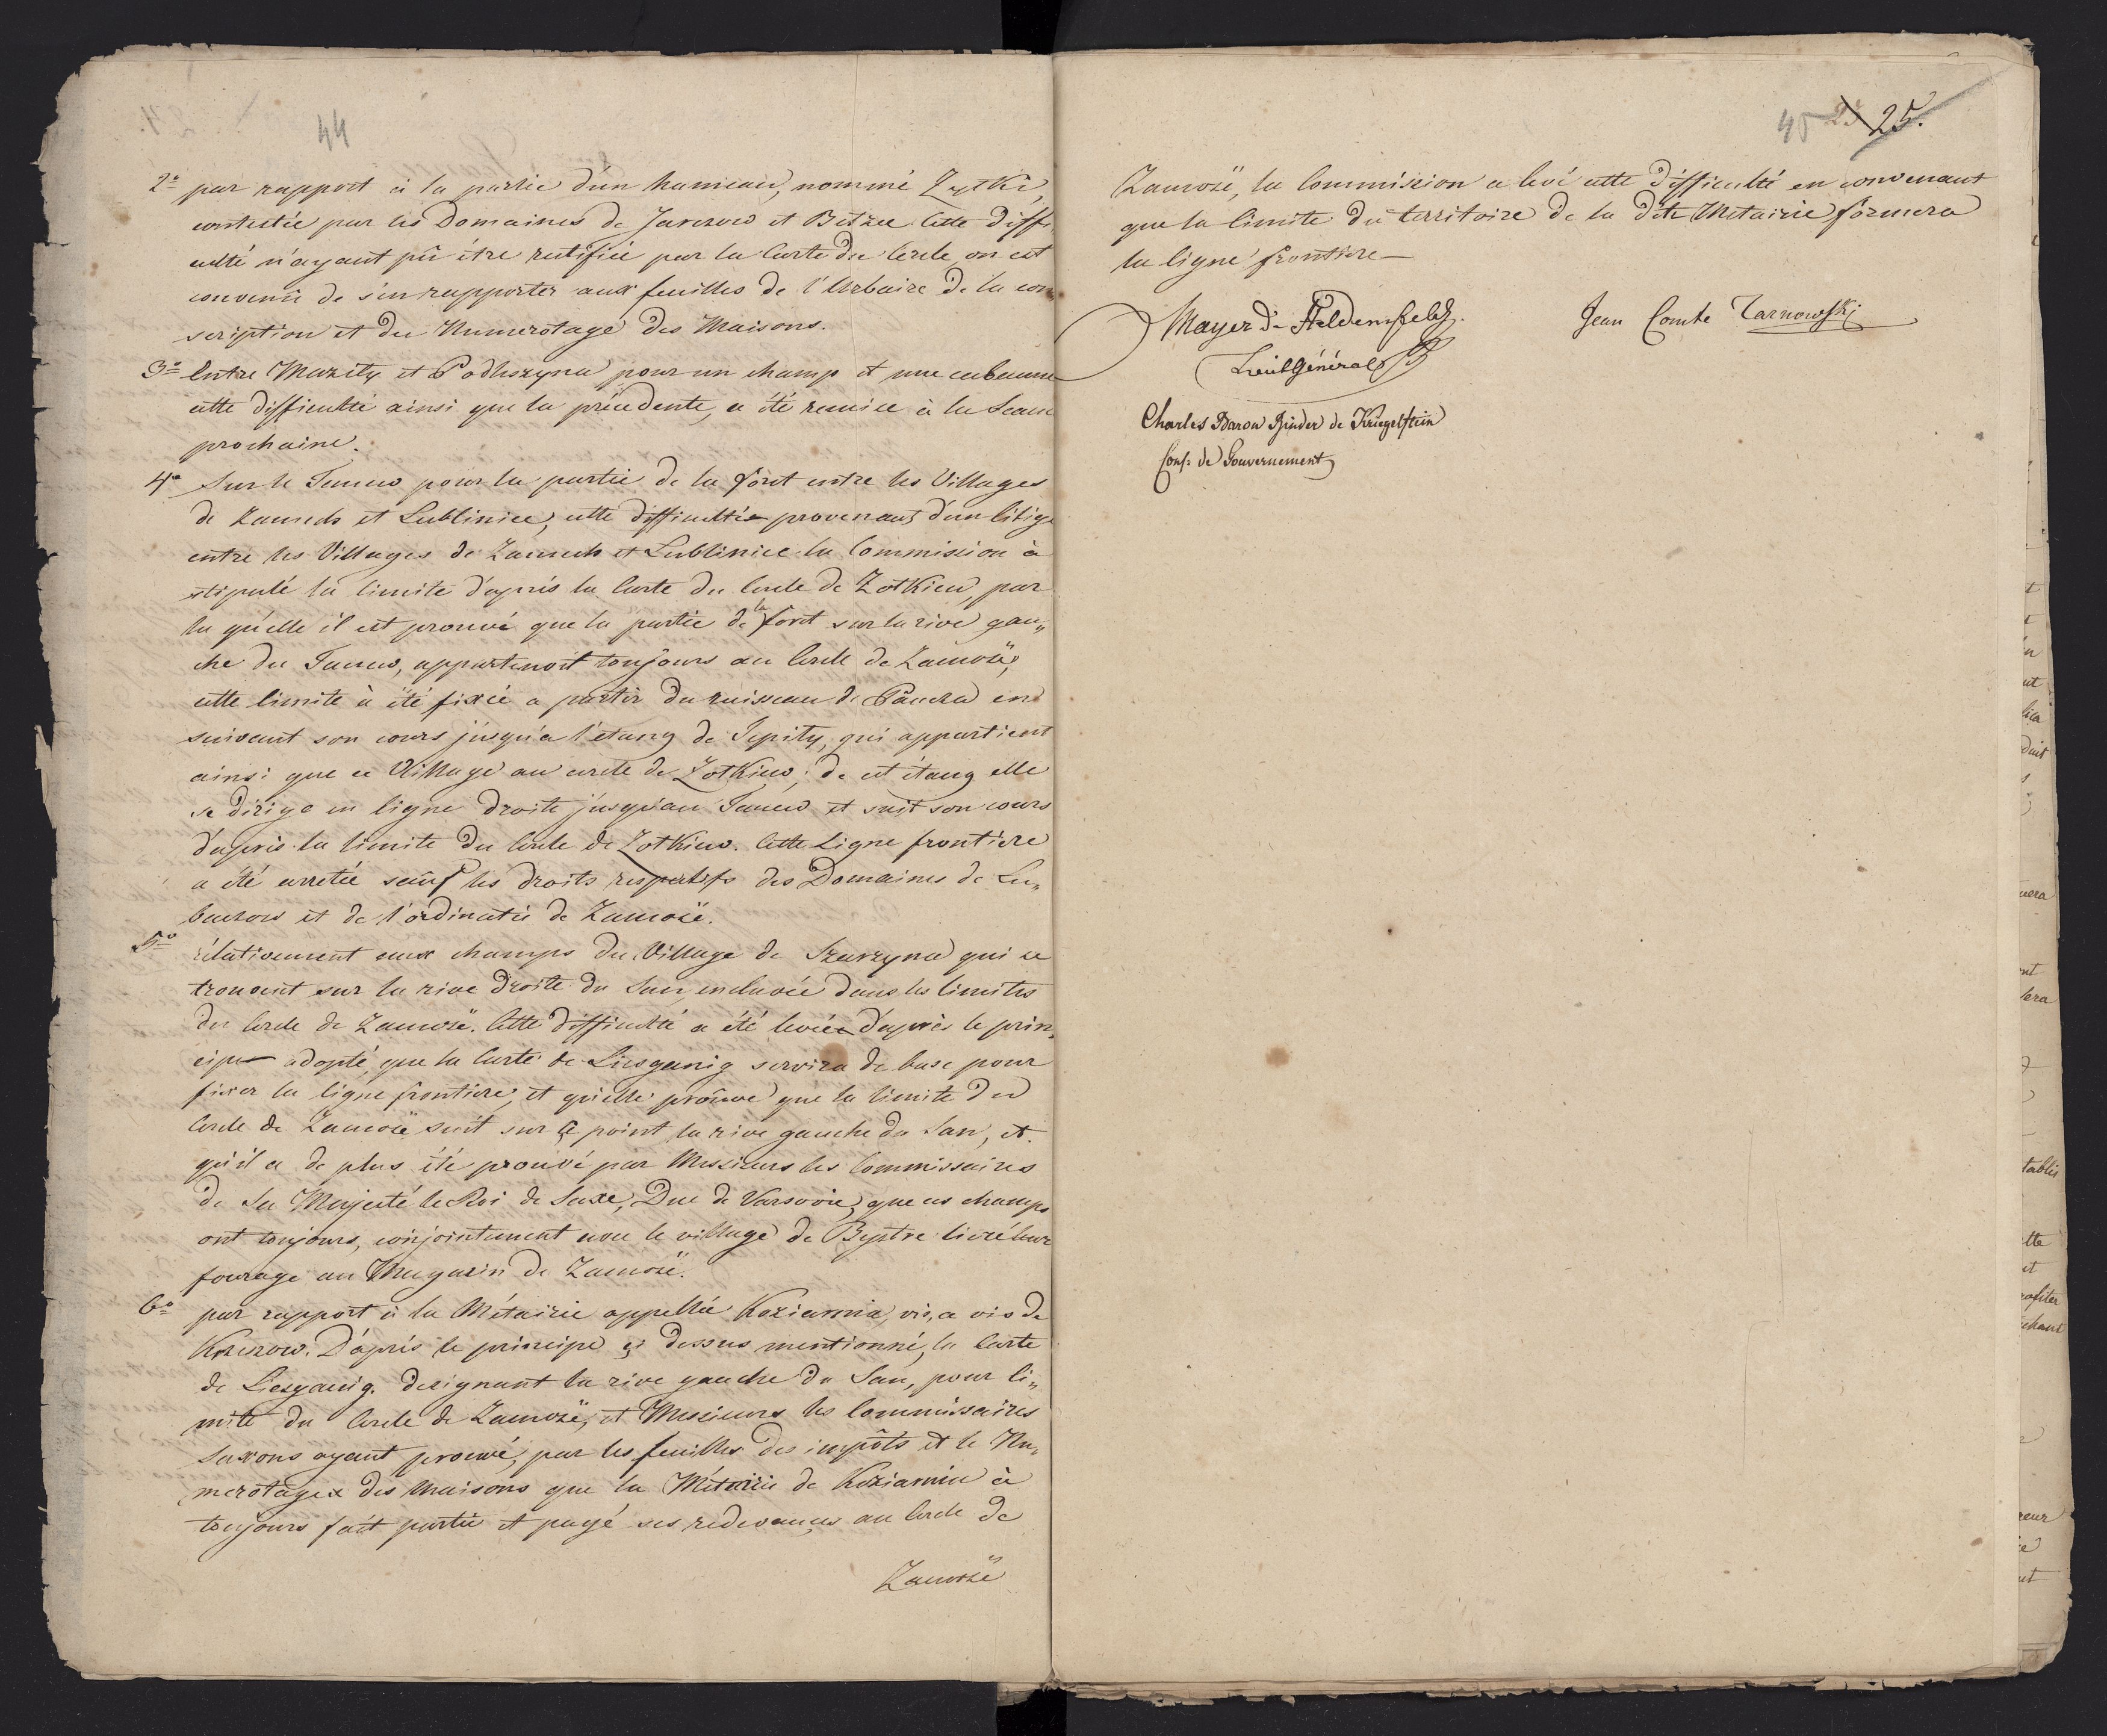 44
2º par rapport à la partie d'un hameau, nommé Zytki,
contestée par les Domaines de Jarczow et Betzec. Cette diffi
culté n'ayant pû être rectifiée par la Carte du Cercle, on est
convenû de s'en rapporter aux feuilles de l'Urbaire de la con
scription et du Numerotage des Maisons.
3º Entre Mazity et Podhszyna pour un champ et une cabanne
cette difficulté ainsi que la précedente, a été remise à la Seance
prochaine.
4º Sur le Tanew pour la partie de la forêt entre les Villages
de Zamch et Lubliniec, cette difficulté provenant d'un litige
entre les Villages de Zamch et Lubliniec la Commission à
stipulé la limite d'après la Carte du Cercle de Zotkiew, par
la qu'elle il est prouvé que la partie de la forêt sur la rive gau„
che du Tanew, appartenoit toujours au Cercle de Zamosč,
cette limite à été fixée a partir du ruisseau de en
suivant son cours jusqu'a l'etang de, qui appartient
ainsi que ce Village au cercle de Zotkiew; de cet étang elle
se dirige en ligne droite jusqu'au Tanew et suit son cours
d'après la limite du Cercle de Zotkiew. Cette Ligne frontière
a été arretée sauf les droits respectifs des Domaines de Lu„
baczow et de l'ordinatie de Zamosč.
5º rélativement aux champs du Village de qui se
trouvent sur la rive droite du San, enclavée dans les limites
du Cercle de Zamosč. Cette difficulté a été levée d'après le prin„
cipe adopté, que la Carte de Liesganig servira de base pour
fixer la ligne frontiere, et qu'elle prouve que la limite du
Cercle de Zamosč suit sur ce point la rive gauche du San, et
qu'il a de plus été prouvé par Messieurs les Commissaires
de Sa Majesté le Roi de Saxe, Duc de Varsovie, que ces champs
ont toujours, conjointement avec le village de Bystre livré leur
fourage au Magazin de Zamosč.
6º par rapport à la Métairie appellée Koziarnia, vis, a vis de
Krzeszow. D'après le principe ci dessus mentionné, la Carte
de Liesganig. designant la rive gauche du San, pour li„
mite du Cercle de Zamosč, et Messieurs les Commissaires
Saxons ayant prouvé, par les feuilles des impôts et le Nu„
merotage des Maisons que la Métairie de Koziarnia à
toujours fait partie et payé ses redevances au Cercle de
Zamosč
45 23 25.
Zamosč, la Commission a levé cette difficulté en convenant
que la limite du territoire de la dite Metairie formera
la ligne frontiere—
Mayer de Heldensfeld
Lieut Général
Jean Comte Tarnowski
Charles Baron Binder de Kriegelstein
Cons: de Gouvernement